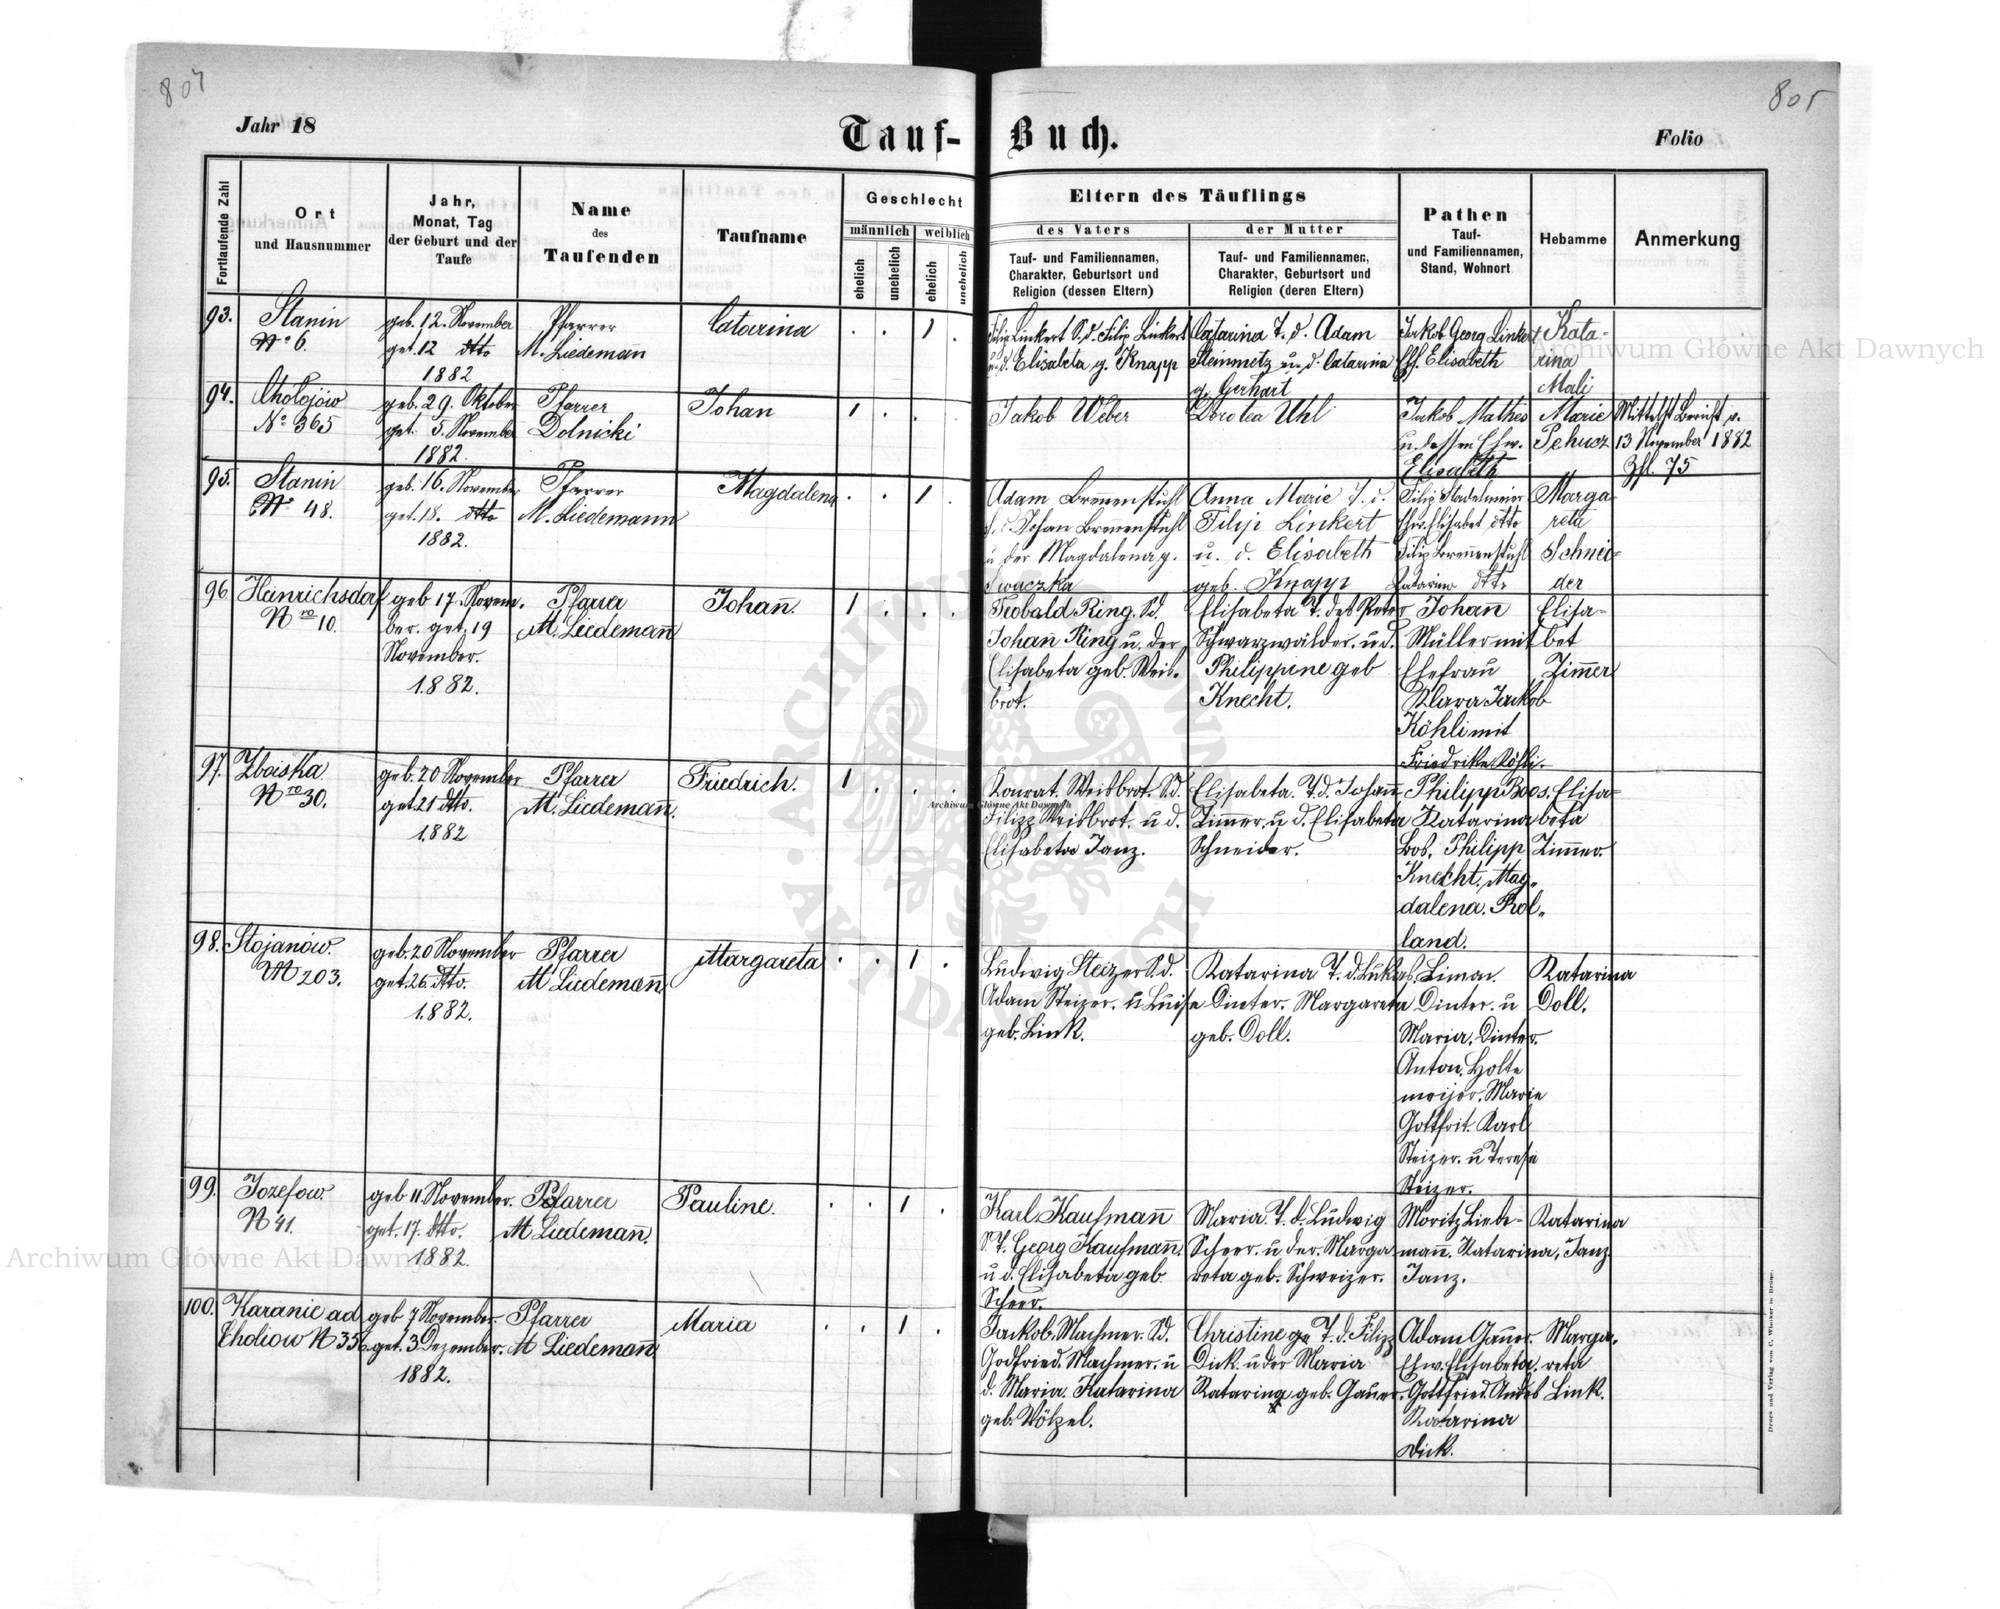 804
805
Jahr 18
Tauf-Buch.
Folio
Fortlaufende Zahl
Ort
und Hausnummer
Jahr,
Monat, Tag
der Geburt und der
Taufe
Name
des
Taufenden
Taufname
Geschlecht
männlich
weiblich
ehelich
unehelich
ehelich
unehelich
Eltern des Täuflings
des Vaters
Tauf- und Familiennamen,
Charakter, Geburtsort und
Religion (dessen Eltern)
der Mutter
Tauf- und Familiennamen,
Charakter, Geburtsort und
Religion (deren Eltern)
Pathen
Tauf-
und Familiennamen,
Stand, Wohnort
Hebamme
Anmerkung
93.
Stanin
No 6.
geb. 12. November
get. 12 dtto
1882
Pfarrer
M. Liedemann
Catarina
1
Filip Linkert S. d. Filip Linkert
u. d. Elisabeta g. Knapp
Catarina T. d. Adam
Steinmetz u. d. Catarina
g. Gerhart
Jakob Georg Linkert
Elisabeth
Kata-
rina
Mali
94.
Cholojów
No 365
geb. 29. Oktober
get. 5. November
1882.
Pfarrer
Dolnicki
Johan
1
Jakob Weber
Dorotea Uhl
Jakob Mathes
u. dessen Ehw.
Elisabeth
Marie
Pehucz
Mittelst Bericht v.
13 November 1882
Zhl. 75
95.
Stanin
No 48.
geb. 16. November
get. 18. dtto
1882.
Pfarrer
M. Liedemann
Magdalena
1
Adam Brennenstuhl
S. d. Johan Brennenstuhl
u. der Magdalena g.
Swaczka
Anna Marie T. d.
Filip Linkert
u. d. Elisabeth
geb. Knapp
Filip Stadelmeier
Ehw. Elisabet dtto
Filip Brennenstuhl
Catarina dtto
Marga-
reta
Schnei-
der
96
Heinrichsdorf
Nro 10.
geb 17. Novem.
ber. get. 19
November.
1882.
Pfarrer
M. Liedemañ
Johañ.
1
Teobald Ring. Sd.
Johañ Ring u. der
Elisabeta geb. Weis-
brot.
Elisabeta T. des Peter
Schwarzwälder. u. d.
Philippine geb
Knecht.
Johan
Müller mit
Ehefrau
Klara Jakob
Köhli mit
Friedrike Köhli.
Elisa-
bet
Zimmer
97.
Zboiska
Nro 30.
geb. 20 November
get. 21 dtto.
1882
Pfarrer
M. Liedemañ.
Friedrich.
1
Konrat. Weisbrot. S.d.
Filipp Weisbrot. u d.
Elisabeta Janz.
Elisabeta. T. d. Johañ
Zimmer. u d. Elisabeta
Schneider.
Philipp Boos.
Katarina
Bos. Philipp
Knecht. Mag-
dalena. Rol-
land.
Elisa-
beta
Zimmer.
98.
Stojanów.
N 203.
geb. 20 November
get. 26. dtto.
1882.
Pfarrer
M Liedemañ
Margareta
1
Ludwig Steizer S.d.
Adam Steizer. u Luise
geb. Link.
Katarina T. d. Lukas
Dinter. Margareta
geb. Doll.
Simon.
Dinter. u
Maria. Dinter.
Anton. Holte
meijer. Marie
Gottfrit. Karl
Steizer. u Terese
Steizer.
Katarina
Doll.
99.
Jozefow.
N 41.
geb 11. November.
get. 17. dtto.
1882.
Pfarrer
M Liedemañ.
Pauline.
1
Karl. Kaufmañ
S. d. Georg Kaufmañ.
u d. Elisabeta geb
Scheer.
Maria. T. d. Ludwig
Scheer. u der. Marga
reta geb. Schweizer.
Moritz Liede-
mañ. Katarina.
Janz.
Katarina
Janz
100.
Karanie ad
Choliow N 356
geb 7 November.
get. 3. Dezember.
1882.
Pfarrer
M Liedemañ
Maria
1
Jackob. Machmer. Sd.
Godfried. Machmer. u
d. Maria. Katarina
geb. Wölzel.
Christine T. d. Filipp
Dick. u der Maria
Katarina geb. Gauer.
Adam Gauer.
Ehw. Elisabeta.
Gottfried. Andes
Katarina
Dick.
Marga-
reta
Link.
Druck und Verlag von C. Winiker in Brünn.
Archiwum Główne Akt Dawnych
Archiwum Główne Akt Dawnych
Archiwum Główne Akt Dawnych